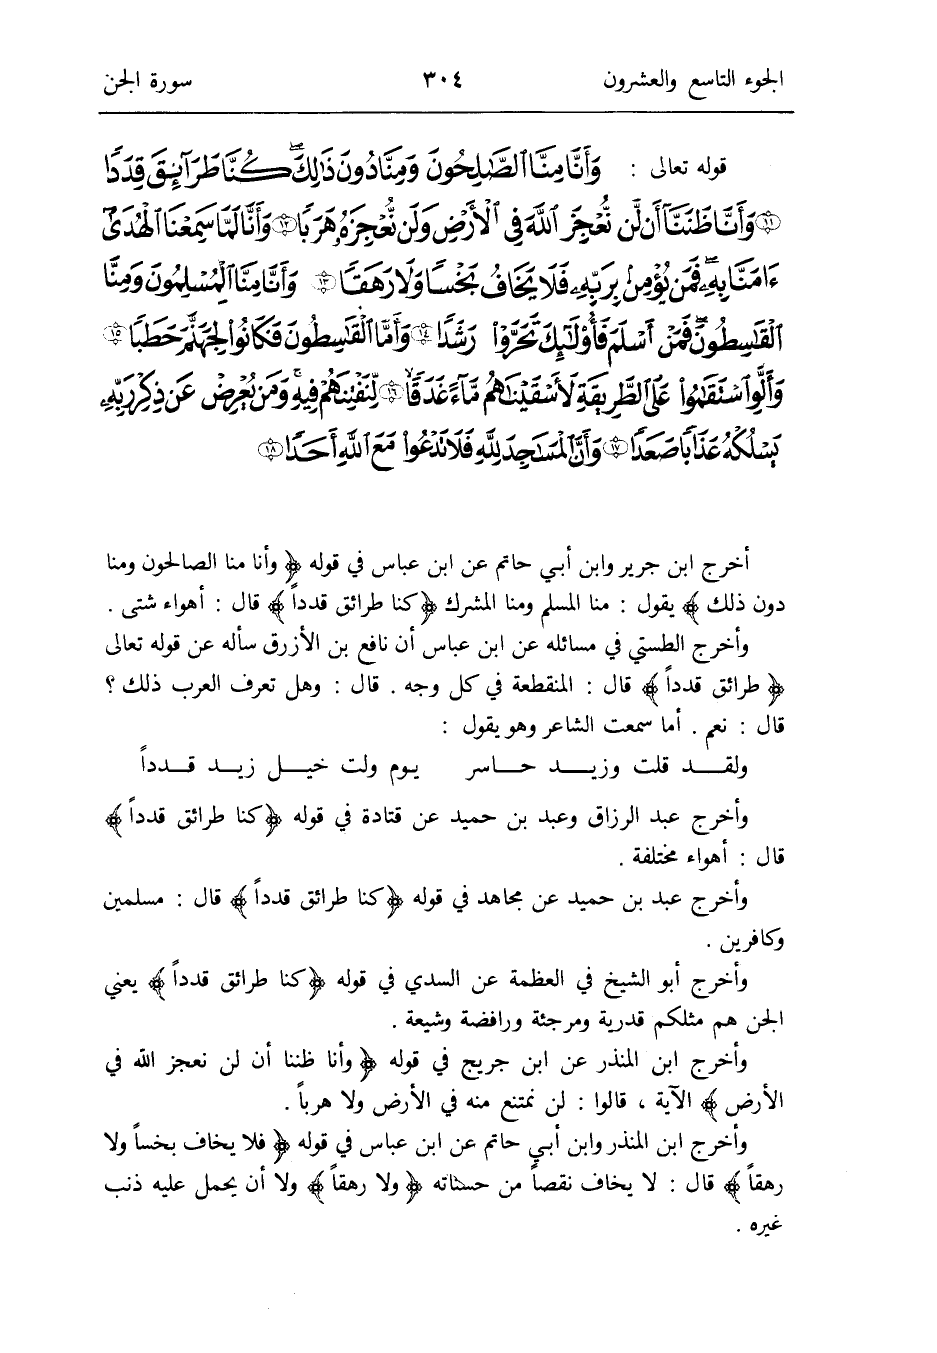 الجزء التاسع والعشرون ٣٠٤ سورة الجن
قوله تعالى : وَأَنَّا مِنَّا ٱلصَّٰلِحُونَ وَمِنَّا دُونَ ذَٰلِكَۖ كُنَّا طَرَآئِقَ قِدَدًا
﴿١١﴾ وَأَنَّا ظَنَنَّآ أَن لَّن نُّعْجِزَ ٱللَّهَ فِى ٱلْأَرْضِ وَلَن نُّعْجِزَهُۥ هَرَبًا ﴿١٢﴾ وَأَنَّا لَمَّا سَمِعْنَا ٱلْهُدَىٰٓ
ءَامَنَّا بِهِۦۖ فَمَن يُؤْمِنۢ بِرَبِّهِۦ فَلَا يَخَافُ بَخْسًا وَلَا رَهَقًا ﴿١٣﴾ وَأَنَّا مِنَّا ٱلْمُسْلِمُونَ وَمِنَّا
ٱلْقَٰسِطُونَۖ فَمَنْ أَسْلَمَ فَأُو۟لَٰٓئِكَ تَحَرَّوْا۟ رَشَدًا ﴿١٤﴾ وَأَمَّا ٱلْقَٰسِطُونَ فَكَانُوا۟ لِجَهَنَّمَ حَطَبًا ﴿١٥﴾
وَأَلَّوِ ٱسْتَقَٰمُوا۟ عَلَى ٱلطَّرِيقَةِ لَأَسْقَيْنَٰهُم مَّآءً غَدَقًا ﴿١٦﴾ لِّنَفْتِنَهُمْ فِيهِۚ وَمَن يُعْرِضْ عَن ذِكْرِ رَبِّهِۦ
يَسْلُكْهُ عَذَابًا صَعَدًا ﴿١٧﴾ وَأَنَّ ٱلْمَسَٰجِدَ لِلَّهِ فَلَا تَدْعُوا۟ مَعَ ٱللَّهِ أَحَدًا ﴿١٨﴾
أخرج ابن جرير وابن أبي حاتم عن ابن عباس في قوله ﴿ وأنا منا الصالحون ومنا
دون ذلك ﴾ يقول : منا المسلم ومنا المشرك ﴿كنا طرائق قدداً﴾ قال : أهواء شتى .
وأخرج الطستي في مسائله عن ابن عباس أن نافع بن الأزرق سأله عن قوله تعالى
﴿ طرائق قدداً ﴾ قال : المنقطعة في كل وجه . قال : وهل تعرف العرب ذلك ؟
قال : نعم . أما سمعت الشاعر وهو يقول :
ولقد قلت وزيد حاسر يوم ولت خيل زيد قدداً
وأخرج عبد الرزاق وعبد بن حميد عن قتادة في قوله ﴿كنا طرائق قدداً ﴾
قال : أهواء مختلفة .
وأخرج عبد بن حميد عن مجاهد في قوله ﴿كنا طرائق قدداً ﴾ قال : مسلمين
وكافرين .
وأخرج أبو الشيخ في العظمة عن السدي في قوله ﴿كنا طرائق قدداً ﴾ يعني
الجن هم مثلكم قدرية ومرجئة ورافضة وشيعة .
وأخرج ابن المنذر عن ابن جريج في قوله ﴿ وأنا ظننا أن لن نعجز الله في
الأرض ﴾ الآية ، قالوا : لن نمتنع منه في الأرض ولا هرباً .
وأخرج ابن المنذر وابن أبي حاتم عن ابن عباس في قوله ﴿ فلا يخاف بخساً ولا
رهقاً ﴾ قال : لا يخاف نقصاً من حسناته ﴿ولا رهقاً﴾ ولا أن يحمل عليه ذنب
غيره .